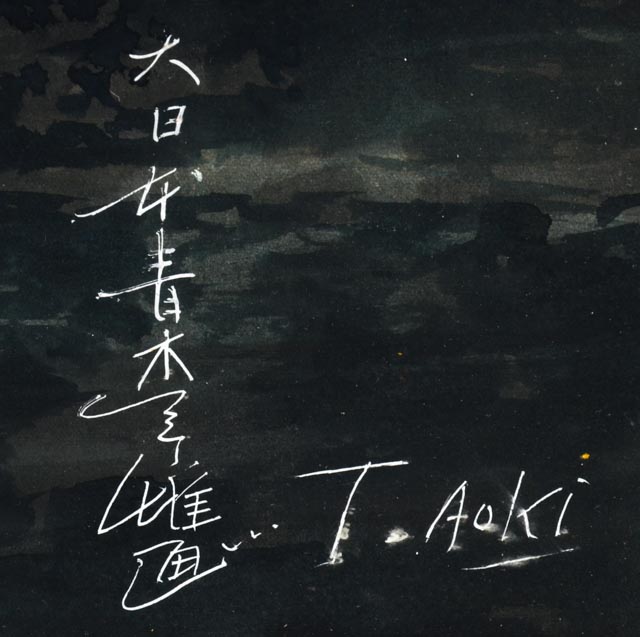 大日本青木年雄画...
T. Aoki